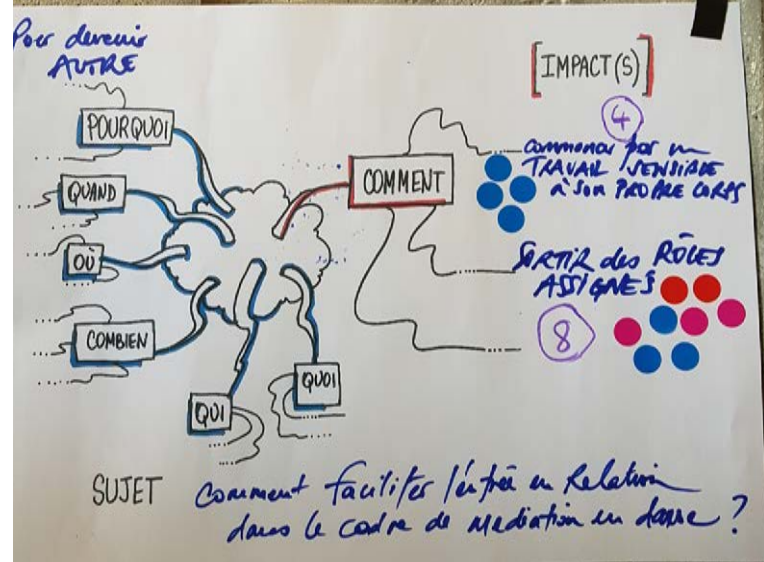 Pour devenir
AUTRE
POURQUOI
QUAND
OÙ
COMBIEN
QUI
QUOI
COMMENT
[IMPACT(S)]
4
commencer par un
TRAVAIL SENSIBLE
à son PROPRE CORPS
SORTIR des RÔLES
ASSIGNES
8
SUJET comment faciliter l'entrée en Relation
dans le cadre de mediation en danse ?